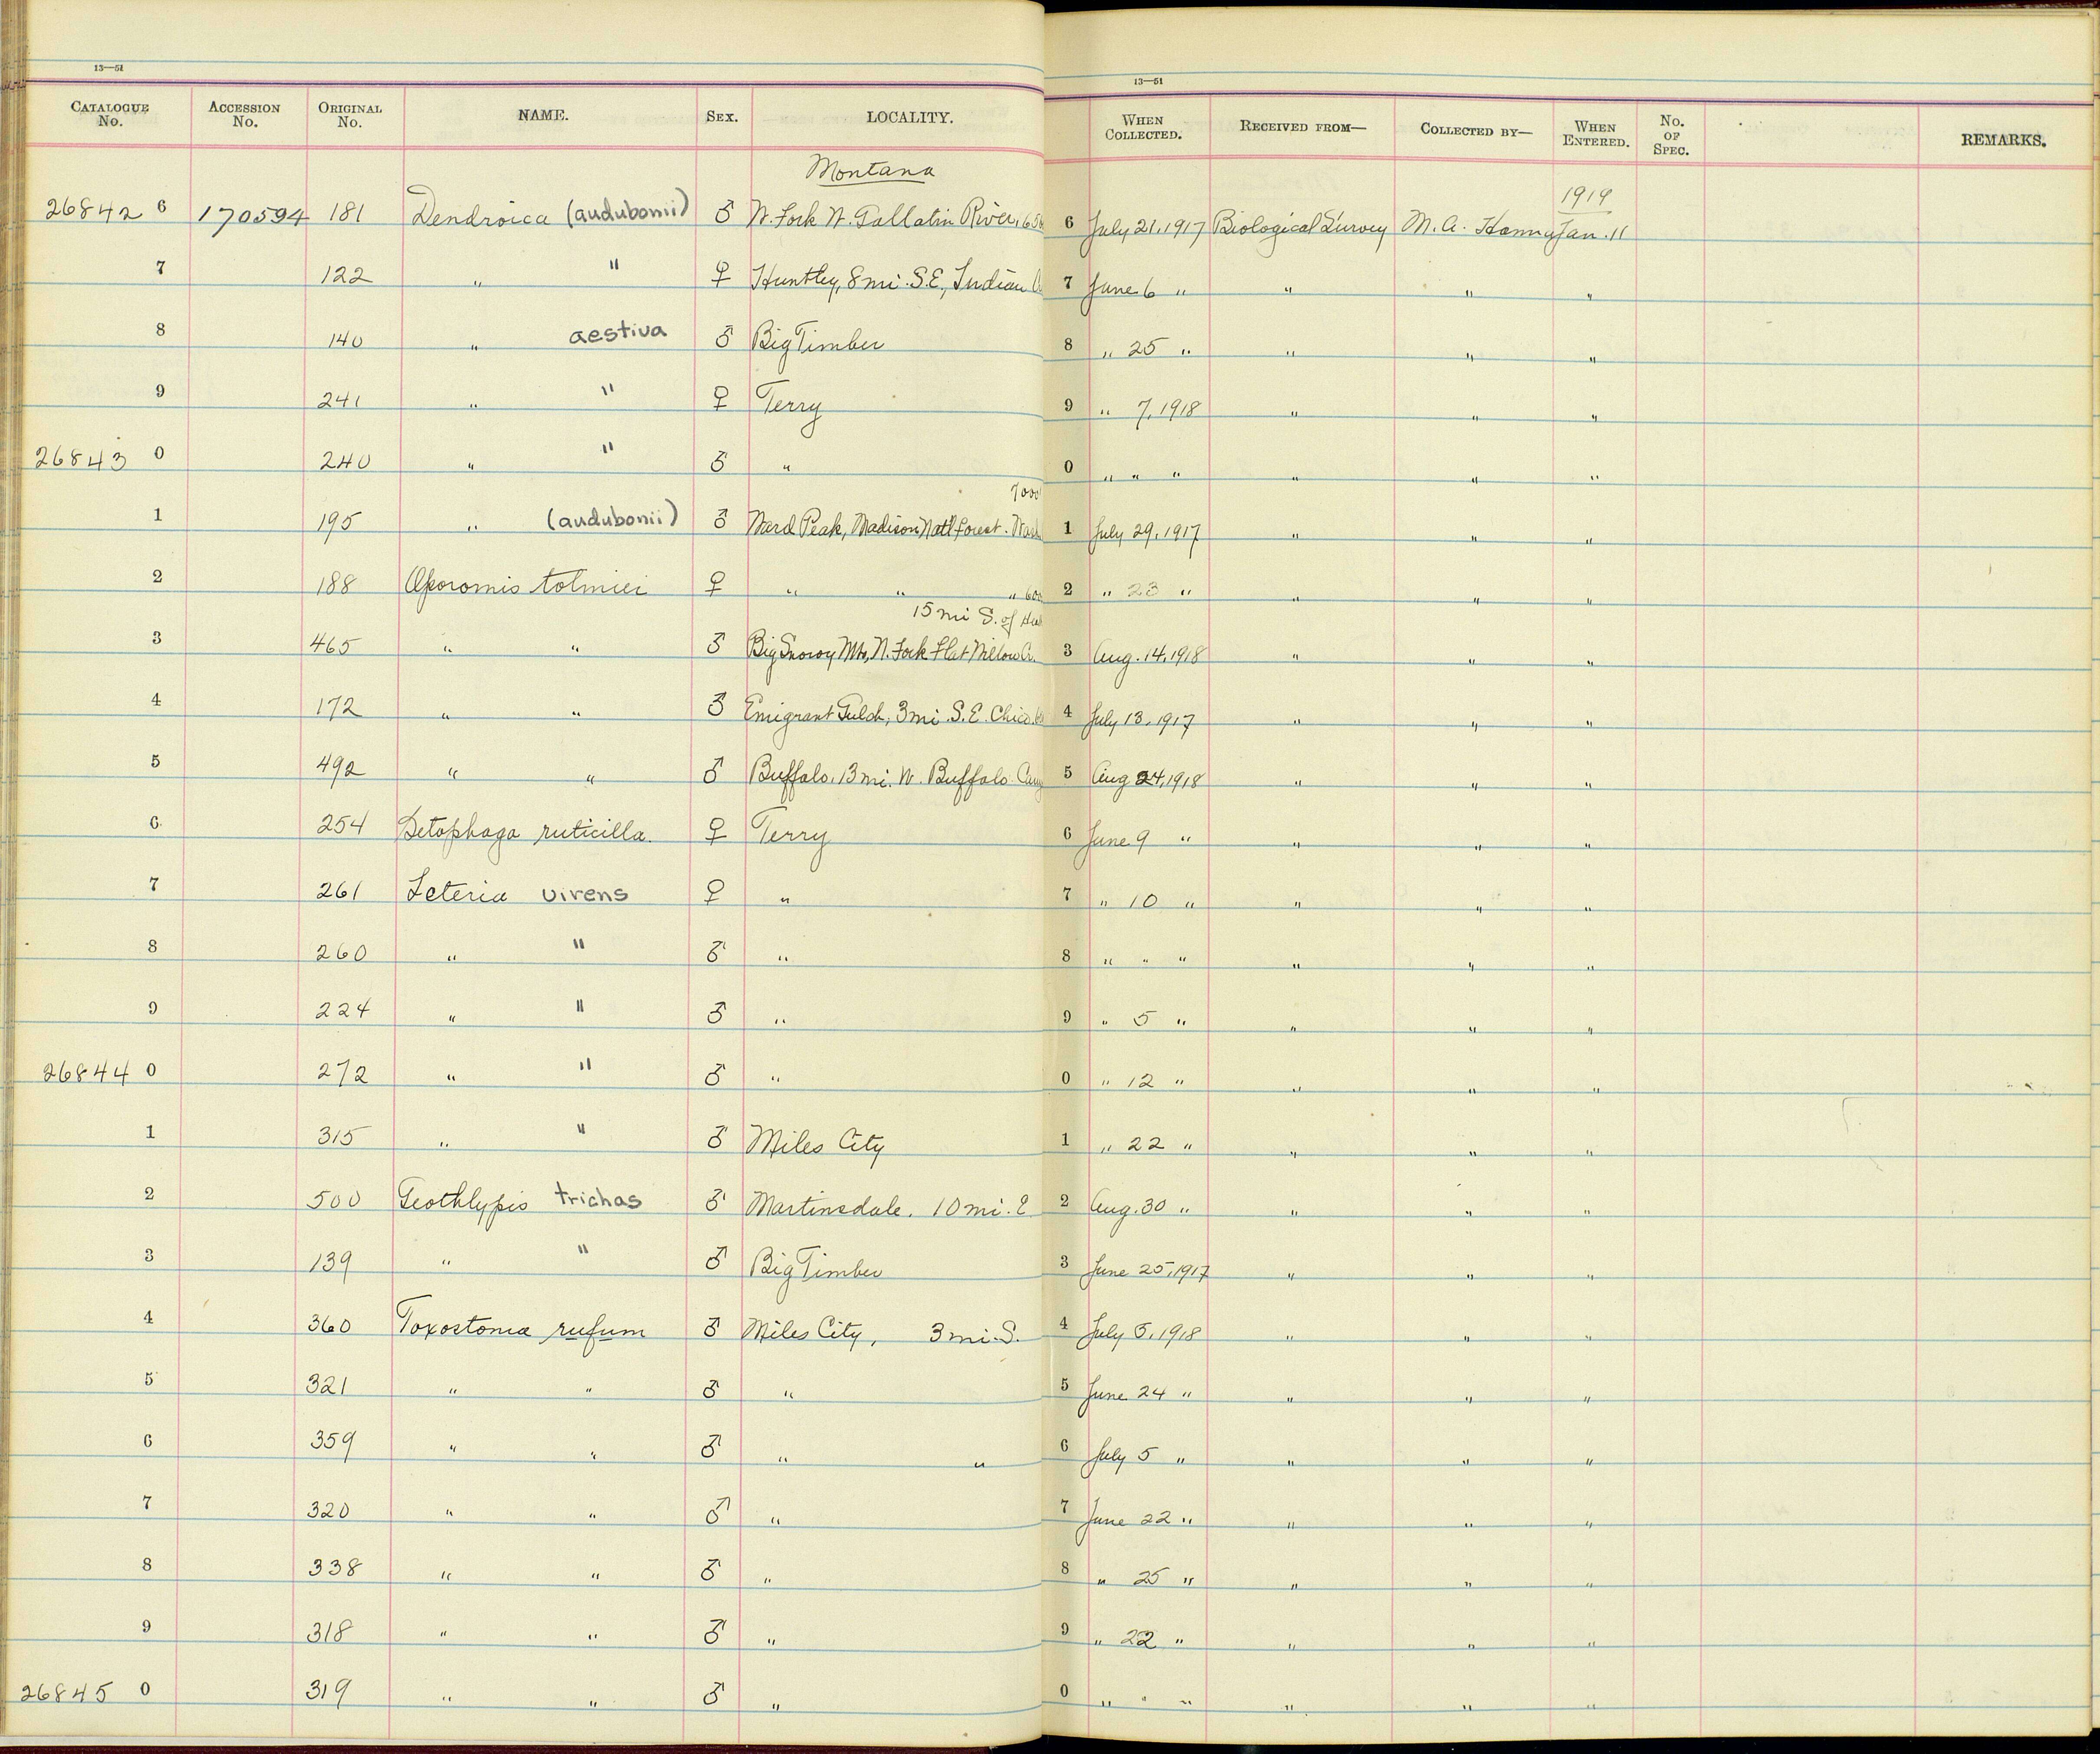 13—51
13—51
CATALOGUE No. ACCESSION No. ORIGINAL No. NAME. SEX. LOCALITY. WHEN COLLECTED. RECEIVED FROM— COLLECTED BY— WHEN ENTERED. No. OF SPEC. REMARKS.
Montana
1919
26842 6 170594 181 Dendroica (audubonii) ♂ W. Fork W. Gallatin River, 6 July 21, 1917 Biological Survey M. A. Hanna Jan. 11
7 122 " " ♀ Huntley, 8 mi. S.E., Indian 7 June 6 " " " "
8 140 " aestiva ♂ Big Timber 8 " 25 " " " "
9 241 " " ♀ Terry 9 " 7, 1918 " " "
26843 0 240 " " ♂ " 0 " " " " " "
7000
1 195 " (audubonii) ♂ Ward Peak, Madison Nat'l forest. 1 July 29, 1917 " " "
2 188 Oporornis tolmiei ♀ " " " 2 " 23 " " " "
15 mi S. of
3 465 " " ♂ Big Snowy Mts, N. Fork Flat Willow Cr. 3 Aug. 14, 1918 " " "
4 172 " " ♂ Emigrant Gulch, 3 mi. S.E. Chico. 4 July 13, 1917 " " "
5 492 " " ♂ Buffalo, 13 mi. W. Buffalo 5 Aug 24, 1918 " " "
6 254 Setophaga ruticilla. ♀ Terry 6 June 9 " " " "
7 261 Icteria virens ♀ " 7 " 10 " " " "
8 260 " " ♂ " 8 " " " " " "
9 224 " " ♂ " 9 " 5 " " " "
26844 0 272 " " ♂ " 0 " 12 " " " "
1 315 " " ♂ Miles City 1 " 22 " " " "
2 500 Geothlypis trichas ♂ Martinsdale. 10 mi. E 2 Aug. 30 " " " "
3 139 " " ♂ Big Timber 3 June 25, 1917 " " "
4 360 Toxostoma rufum ♂ Miles City, 3 mi. S. 4 July 5, 1918 " " "
5 321 " " ♂ " 5 June 24 " " " "
6 359 " " ♂ " " 6 July 5 " " " "
7 320 " " ♂ " 7 June 22 " " " "
8 338 " " ♂ " 8 " 25 " " " "
9 318 " " ♂ " 9 " 22 " " " "
26845 0 319 " " ♂ " 0 " " " " " "